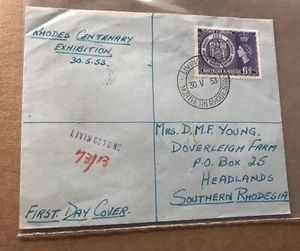 RHODES CENTENARY
EXHIBITION
30.5.53.
LIVINGSTONE
30 V 53
NORTHERN RHODESIA
6d
LIVINGSTONE
MRS. D.M.F. YOUNG.
DOVERLEIGH FARM
P.O. BOX 25
HEADLANDS
SOUTHERN RHODESIA
FIRST DAY COVER.